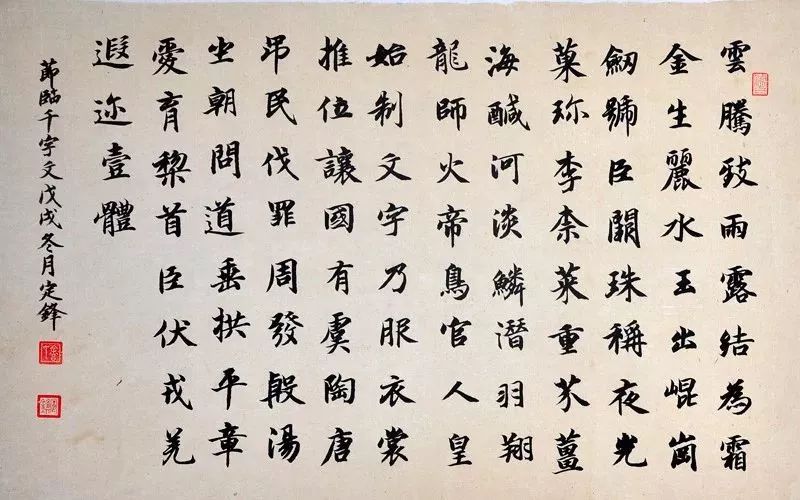 雲騰致雨露結為霜
金生麗水玉出崐崗
劒號臣闕珠稱夜光
菓珎李柰菜重芥薑
海醎河淡鱗潛羽翔
龍師火帝鳥官人皇
始制文字乃服衣裳
推位讓國有虞陶唐
弔民伐罪周發殷湯
坐朝問道垂拱平章
愛育黎首臣伏戎羌
遐迩壹體
節臨千字文戊戌冬月定鋒